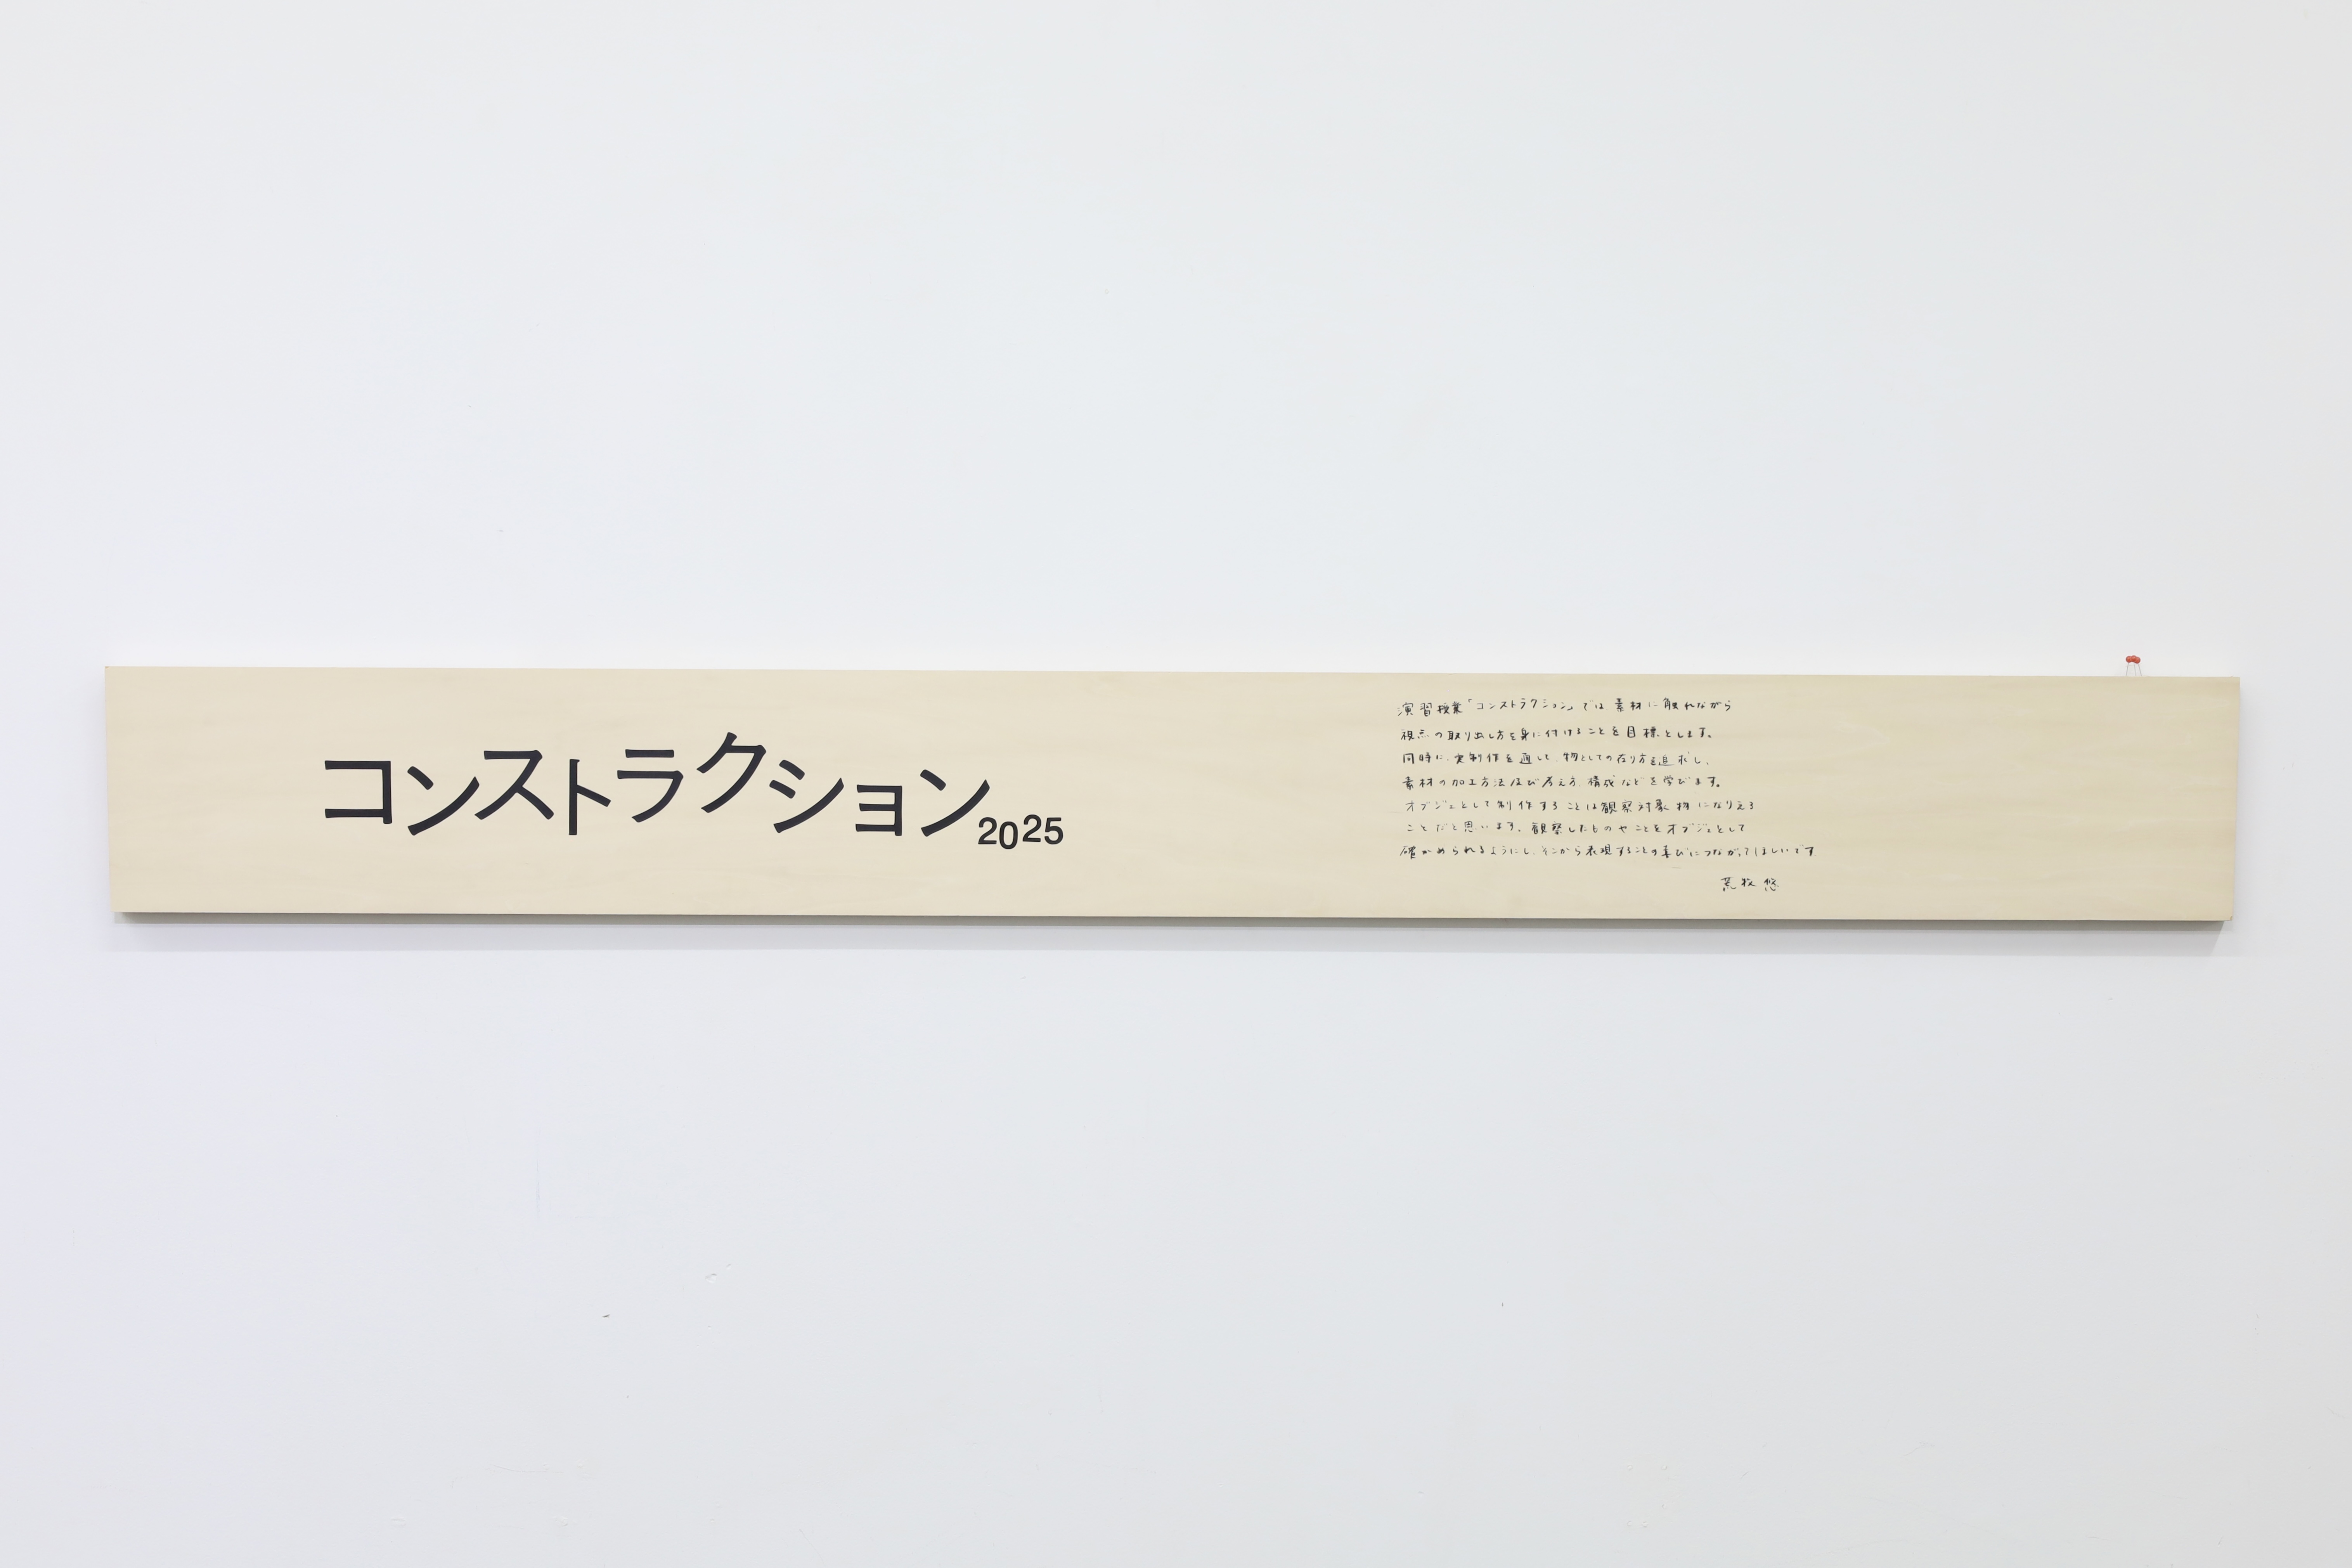 コンストラクション2025
演習授業「コンストラクション」では素材に触れながら
視点の取り出し方を身に付けることを目標とします。
同時に、実制作を通して、物としての在り方を追求し、
素材の加工方法及び考え方、構成などを学びます。
オブジェとして制作することは観察対象物になりえる
ことだと思います。観察したものやことをオブジェとして
確かめられるようにし、そこから表現することの喜びにつながってほしいです
荒牧悠